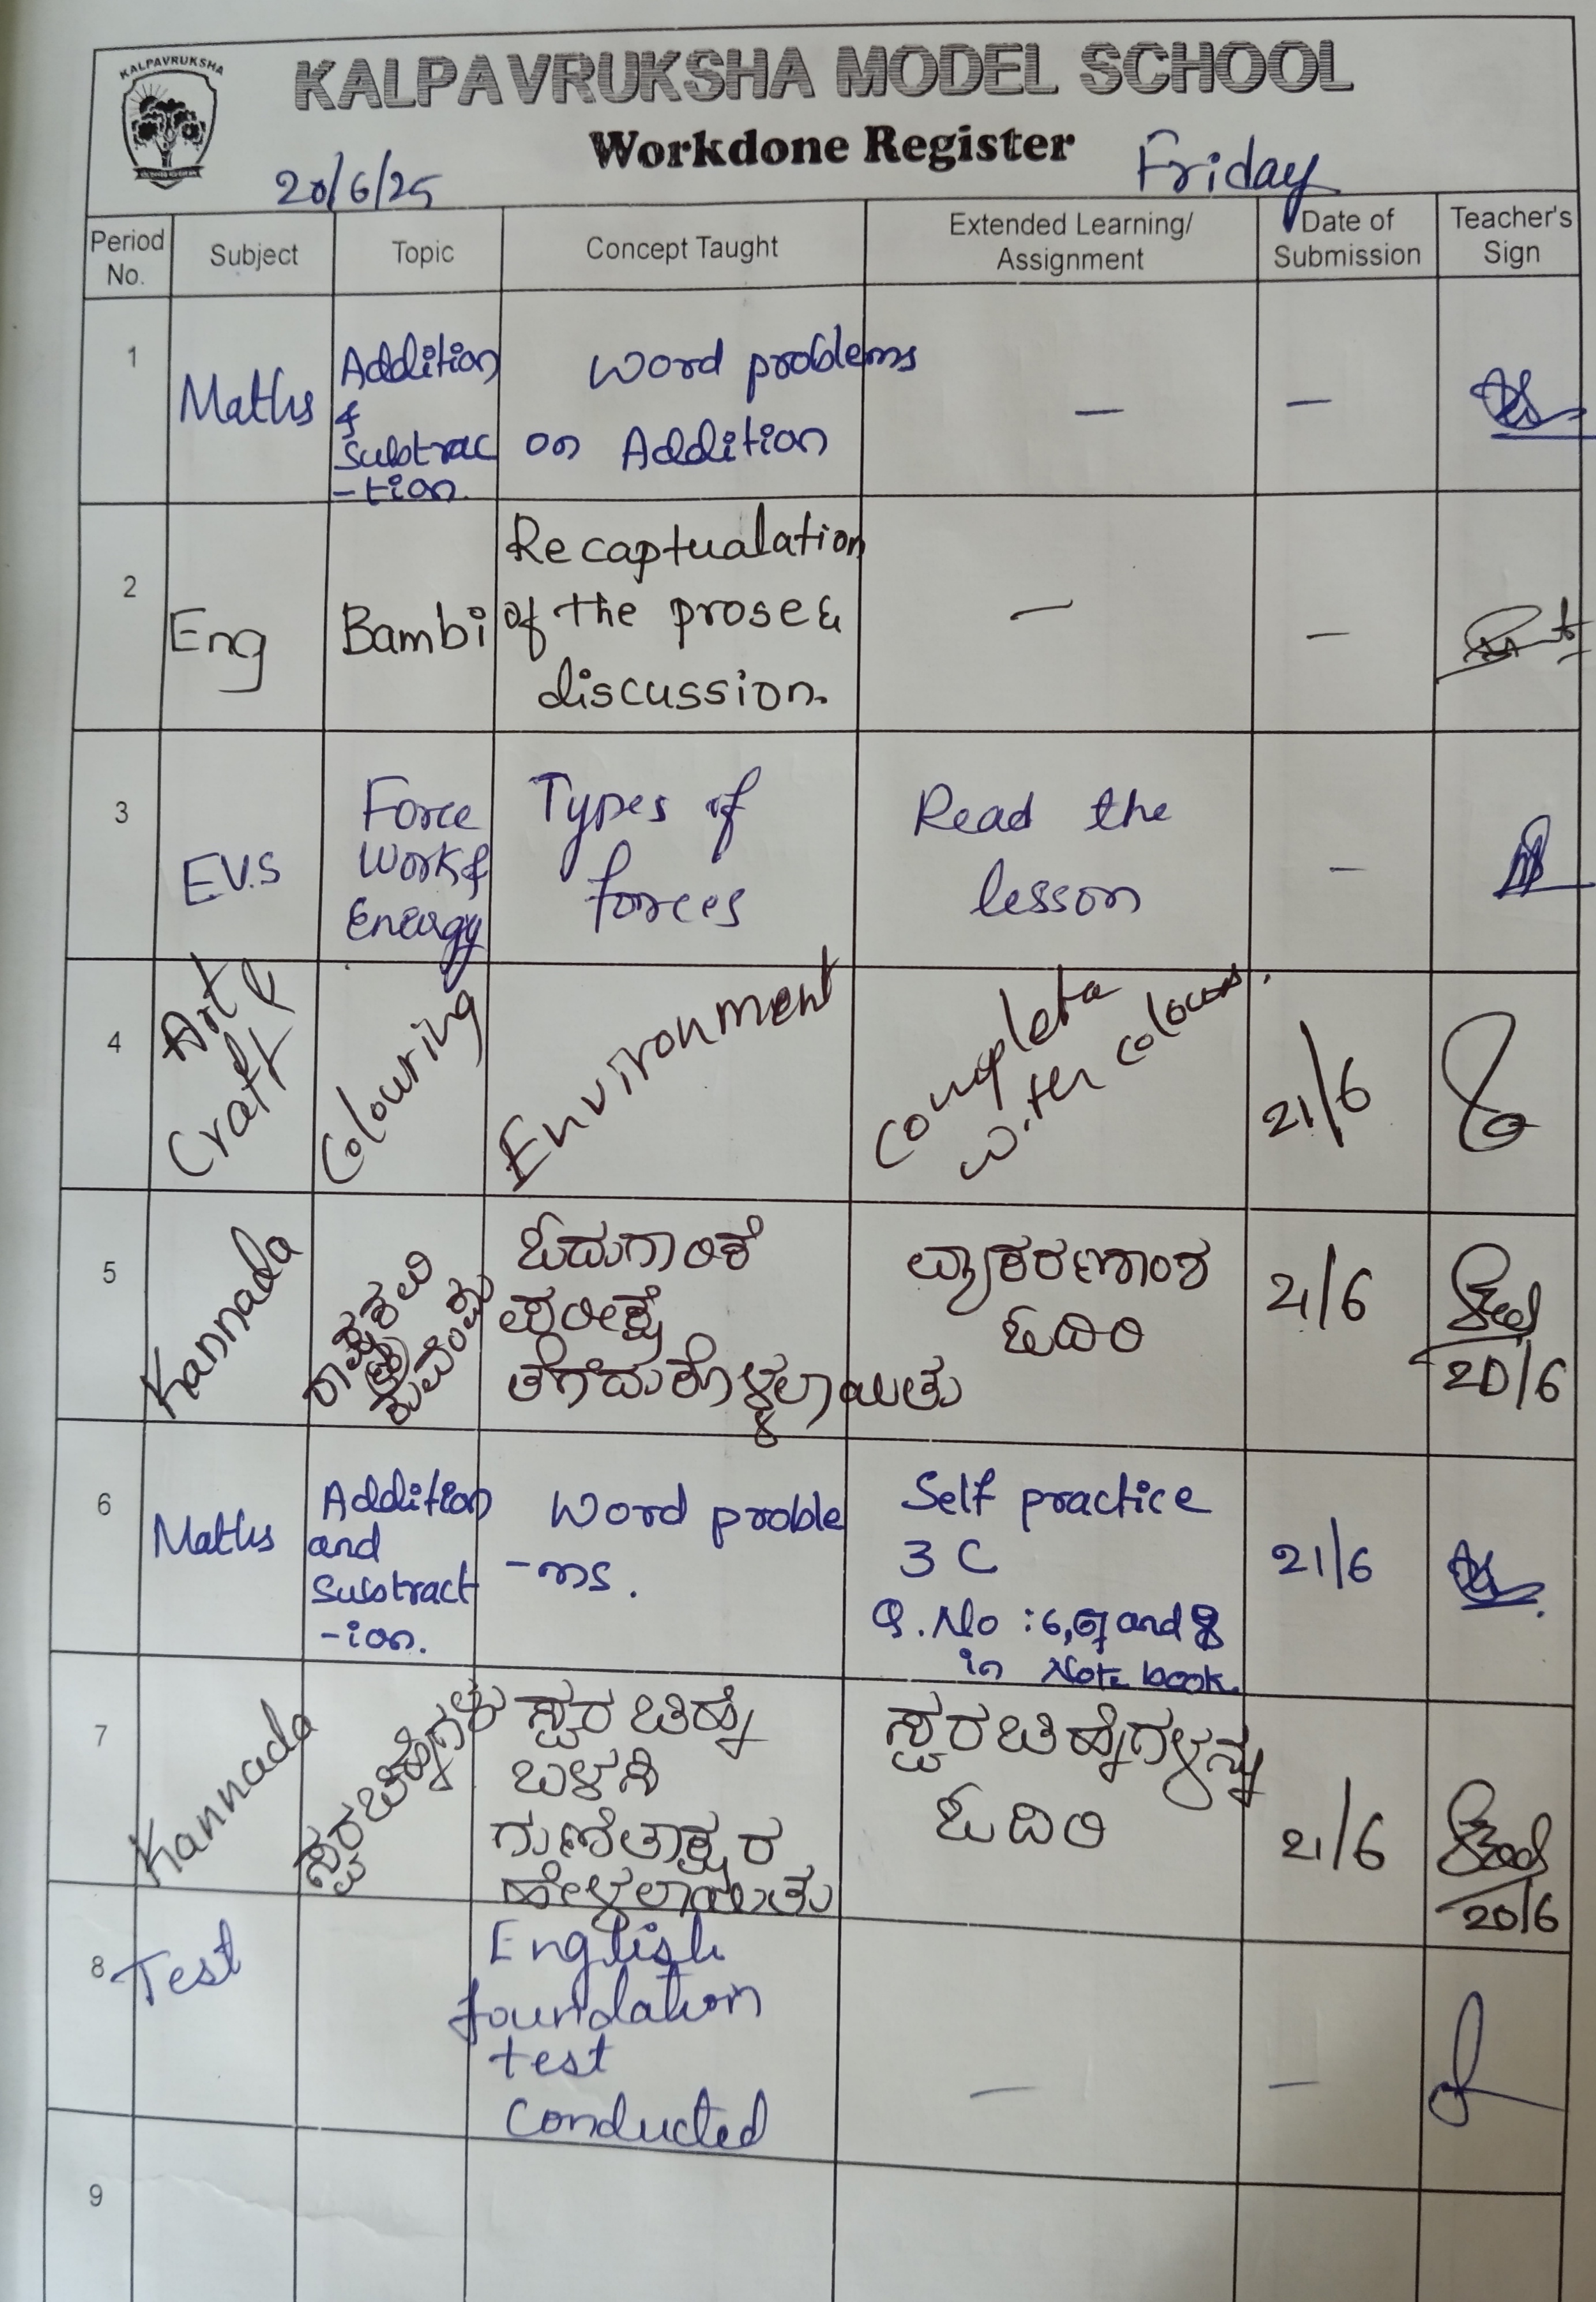 KALPAVRUKSHA
KALPAVRUKSHA MODEL SCHOOL
Workdone Register
20/6/25
Friday
Period No.
Subject
Topic
Concept Taught
Extended Learning/ Assignment
Date of Submission
Teacher's Sign
1
Maths
Addition
&
Subtrac
-tion.
Word problems
on Addition
—
—
2
Eng
Bambi
Recaptualation
of the prose &
discussion.
—
—
3
EV.S
Force
Work &
Energy
Types of
forces
Read the
lesson
—
4
Art &
Craft
Colouring
Environment
Complete
water colours.
21/6
5
Kannada
ಓದುಗಾರಿಕೆ
ಪರೀಕ್ಷೆ
ತೆಗೆದುಕೊಳ್ಳಲಾಯಿತು
ವ್ಯಾಕರಣಾಂಶ
ಓದಿರಿ
21/6
20/6
6
Maths
Addition
and
Subtract
-ion.
Word proble
-ms.
Self practice
3 C
Q. No : 6, 7 and 8
in Note book.
21/6
7
Kannada
ಸ್ವರಚಿಹ್ನೆಗಳು
ಸ್ವರ ಚಿಹ್ನೆ
ಬಳಸಿ
ಗುಣಿತಾಕ್ಷರ
ಹೇಳಲಾಯಿತು
ಸ್ವರ ಚಿಹ್ನೆಗಳನ್ನು
ಓದಿರಿ
21/6
20/6
8
Test
English
foundation
test
Conducted
—
—
9